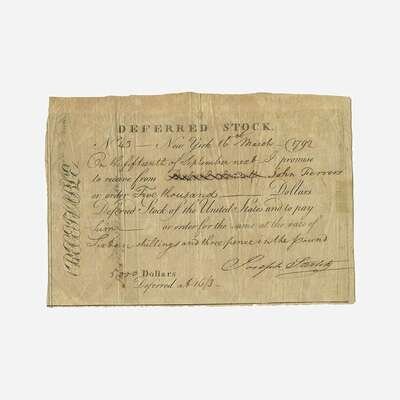 DEFERRED STOCK.
No 43 — New York 16 March 1792
On the fifteenth of September next I promise
to receive from John
or order Five thousand Dollars
Deferred Stock of the United States and to pay
him or order for the same at the rate of
Sixteen shillings and three pence in the pound
Joseph
5,000 Dollars
Deferred at 16/3